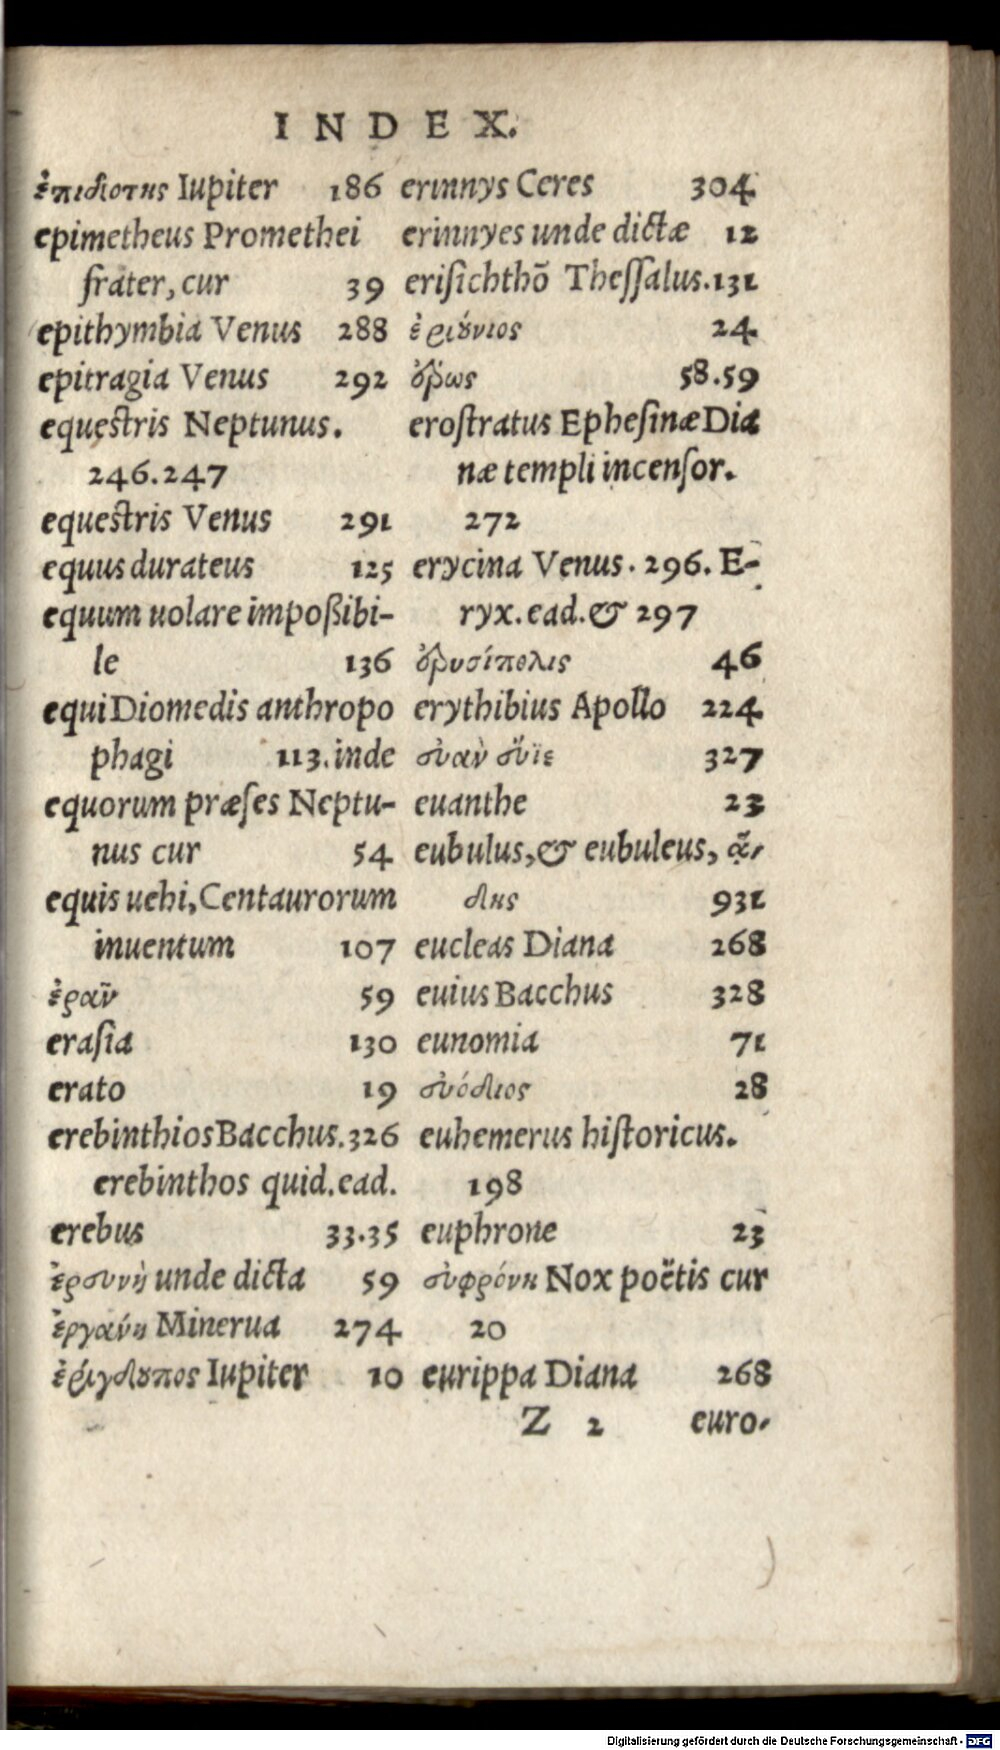 INDEX.
ἐπιδιοτης Iupiter 186
epimetheus Promethei
frater, cur 39
epithymbia Venus 288
epitragia Venus 292
equestris Neptunus.
246.247
equestris Venus 291
equus durateus 125
equum uolare impoßibi-
le 136
equi Diomedis anthropo
phagi 113. inde
equorum præses Neptu-
nus cur 54
equis uehi, Centaurorum
inuentum 107
ἐρᾶν 59
erasia 130
erato 19
erebinthios Bacchus. 326
erebinthos quid. ead.
erebus 33.35
ἐρευνὴ unde dicta 59
ἐργάνη Minerua 274
ἐρίγδουπος Iupiter 10
erinnys Ceres 304
erinnyes unde dictæ 12
erisichthõ Thessalus. 131
ἐριούνιος 24
ἔρως 58.59
erostratus Ephesinæ Dia
næ templi incensor.
272
erycina Venus. 296. E-
ryx. ead. & 297
ἐρυσίπολις 46
erythibius Apollo 224
εὐὰν εὔϊε 327
euanthe 23
eubulus, & eubuleus, ᾅ-
δης 931
eucleas Diana 268
euius Bacchus 328
eunomia 71
εὐόδιος 28
euhemerus historicus.
198
euphrone 23
εὐφρόνη Nox poëtis cur
20
eurippa Diana 268
Z 2 euro-
Digitalisierung gefördert durch die Deutsche Forschungsgemeinschaft - DFG